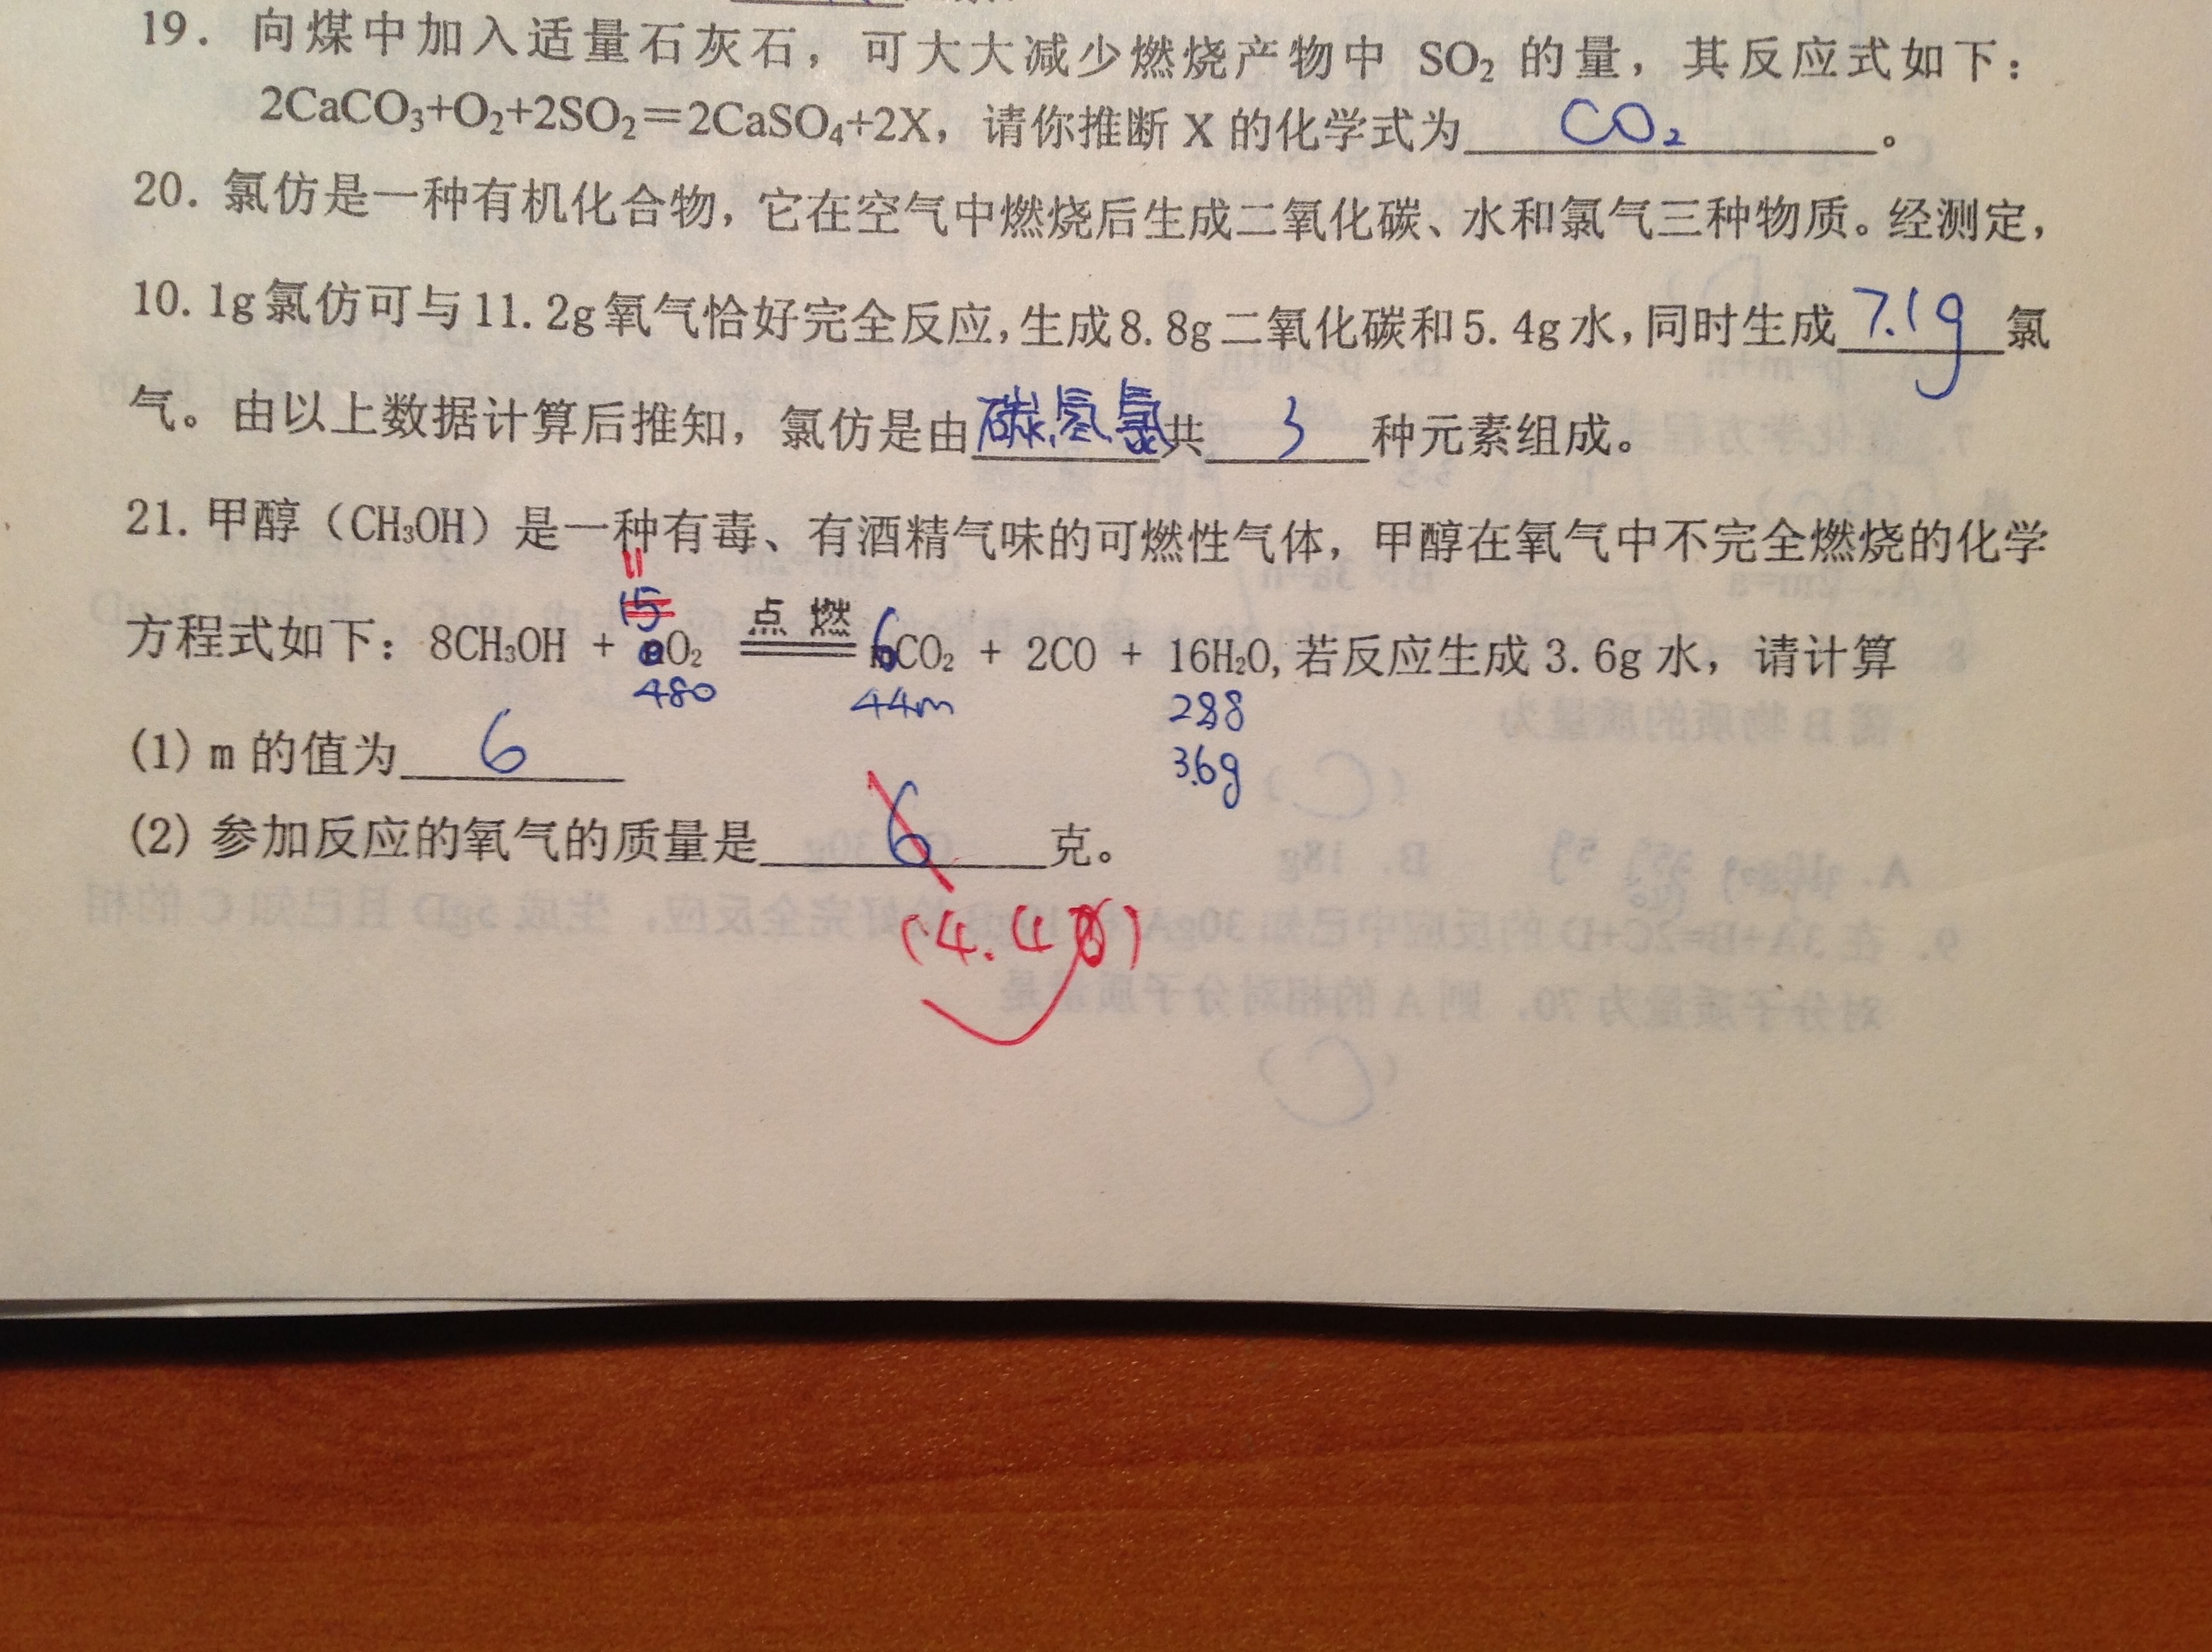 19. 向煤中加入适量石灰石，可大大减少燃烧产物中 SO₂ 的量，其反应式如下：
2CaCO₃+O₂+2SO₂=2CaSO₄+2X，请你推断 X 的化学式为 CO₂ 。
20. 氯仿是一种有机化合物，它在空气中燃烧后生成二氧化碳、水和氯气三种物质。经测定，
10.1g氯仿可与11.2g氧气恰好完全反应，生成8.8g二氧化碳和5.4g水，同时生成 7.1g 氯
气。由以上数据计算后推知，氯仿是由 碳、氢、氯 共 3 种元素组成。
21. 甲醇（CH₃OH）是一种有毒、有酒精气味的可燃性气体，甲醇在氧气中不完全燃烧的化学
15
点 燃
方程式如下：8CH₃OH + O₂ ══ 6CO₂ + 2CO + 16H₂O，若反应生成 3.6g 水，请计算
480 44m 288
(1) m 的值为 6
3.6g
(2) 参加反应的氧气的质量是 6 克。